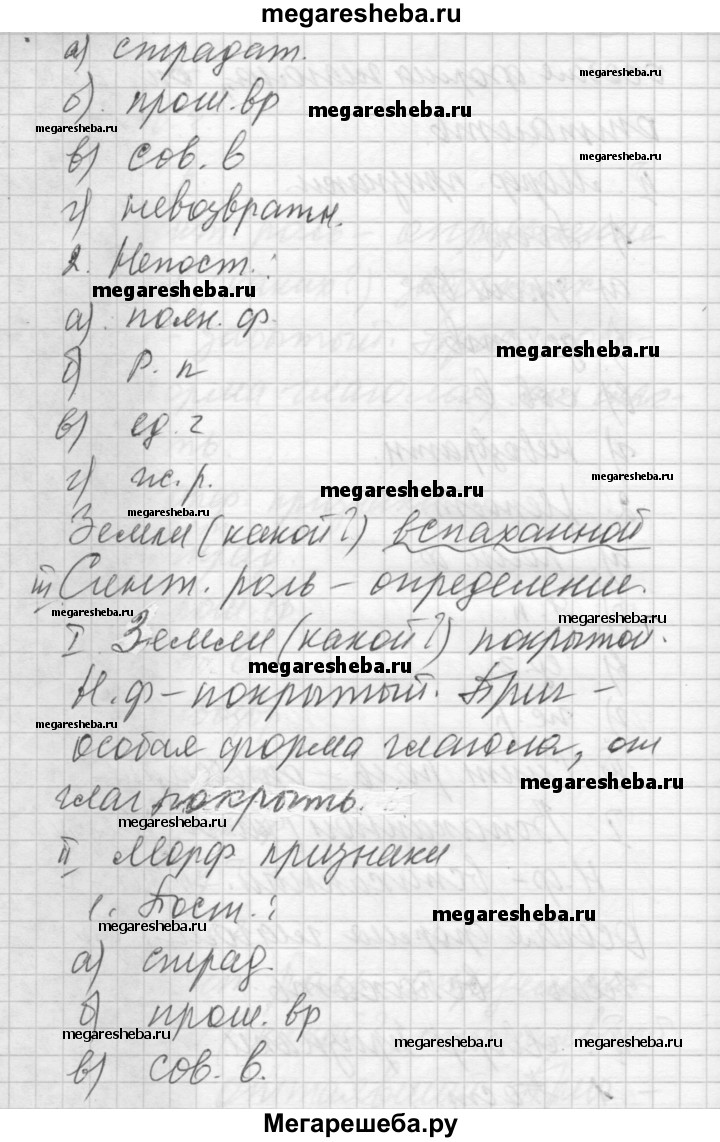 megaresheba.ru
а) страдат.
megaresheba.ru
б). прош. вр
megaresheba.ru
megaresheba.ru
в) сов. в
megaresheba.ru
г) невозвратн.
2. Непост.:
megaresheba.ru
а). полн. ф.
megaresheba.ru
б) Р. п
в) ед. ч
г) ж. р.
megaresheba.ru
megaresheba.ru
megaresheba.ru
Земли (какой?) вспаханной
III Синт. роль – определение.
megaresheba.ru
megaresheba.ru
I Земли (какой?) покрытой.
megaresheba.ru
Н. ф – покрытый. Прич –
megaresheba.ru
особая форма глагола, от
megaresheba.ru
глаг покрыть.
megaresheba.ru
II Морф признаки
1. Пост.:
megaresheba.ru
megaresheba.ru
а) страд.
б) прош. вр
megaresheba.ru
megaresheba.ru
megaresheba.ru
в) сов. в.
Мегарешеба.ру